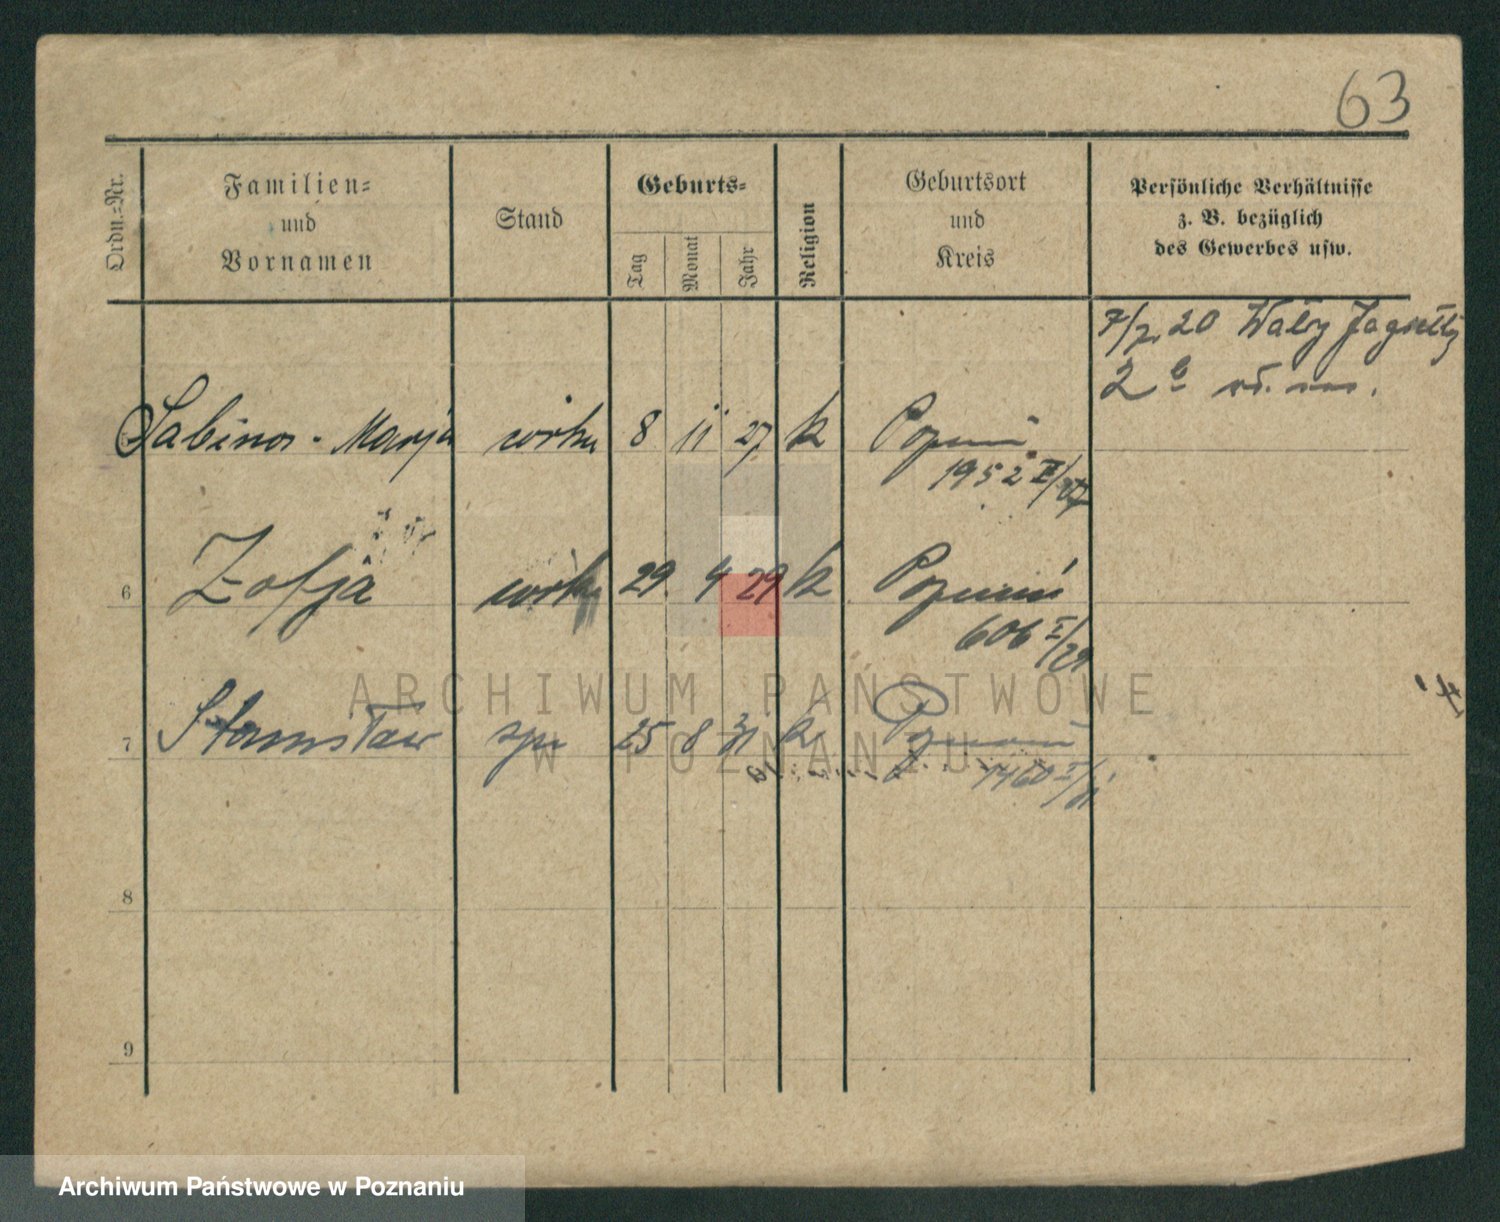 63
Ordn.-Nr.
Familien-
und
Vornamen
Stand
Geburts-
Tag
Monat
Jahr
Religion
Geburtsort
und
Kreis
Persönliche Verhältnisse
z. B. bezüglich
des Gewerbes usw.
20 Wały Jagiełły
Sabina - Marja córka 8 11 27 k Poznań
1952 II/27
6 Zofja córka 29 4 29 k Poznań
606 I/29
7 Stanisław syn 25 8 31 k Poznań
1460 I/31
8
9
ARCHIWUM PAŃSTWOWE
W POZNANIU
Archiwum Państwowe w Poznaniu